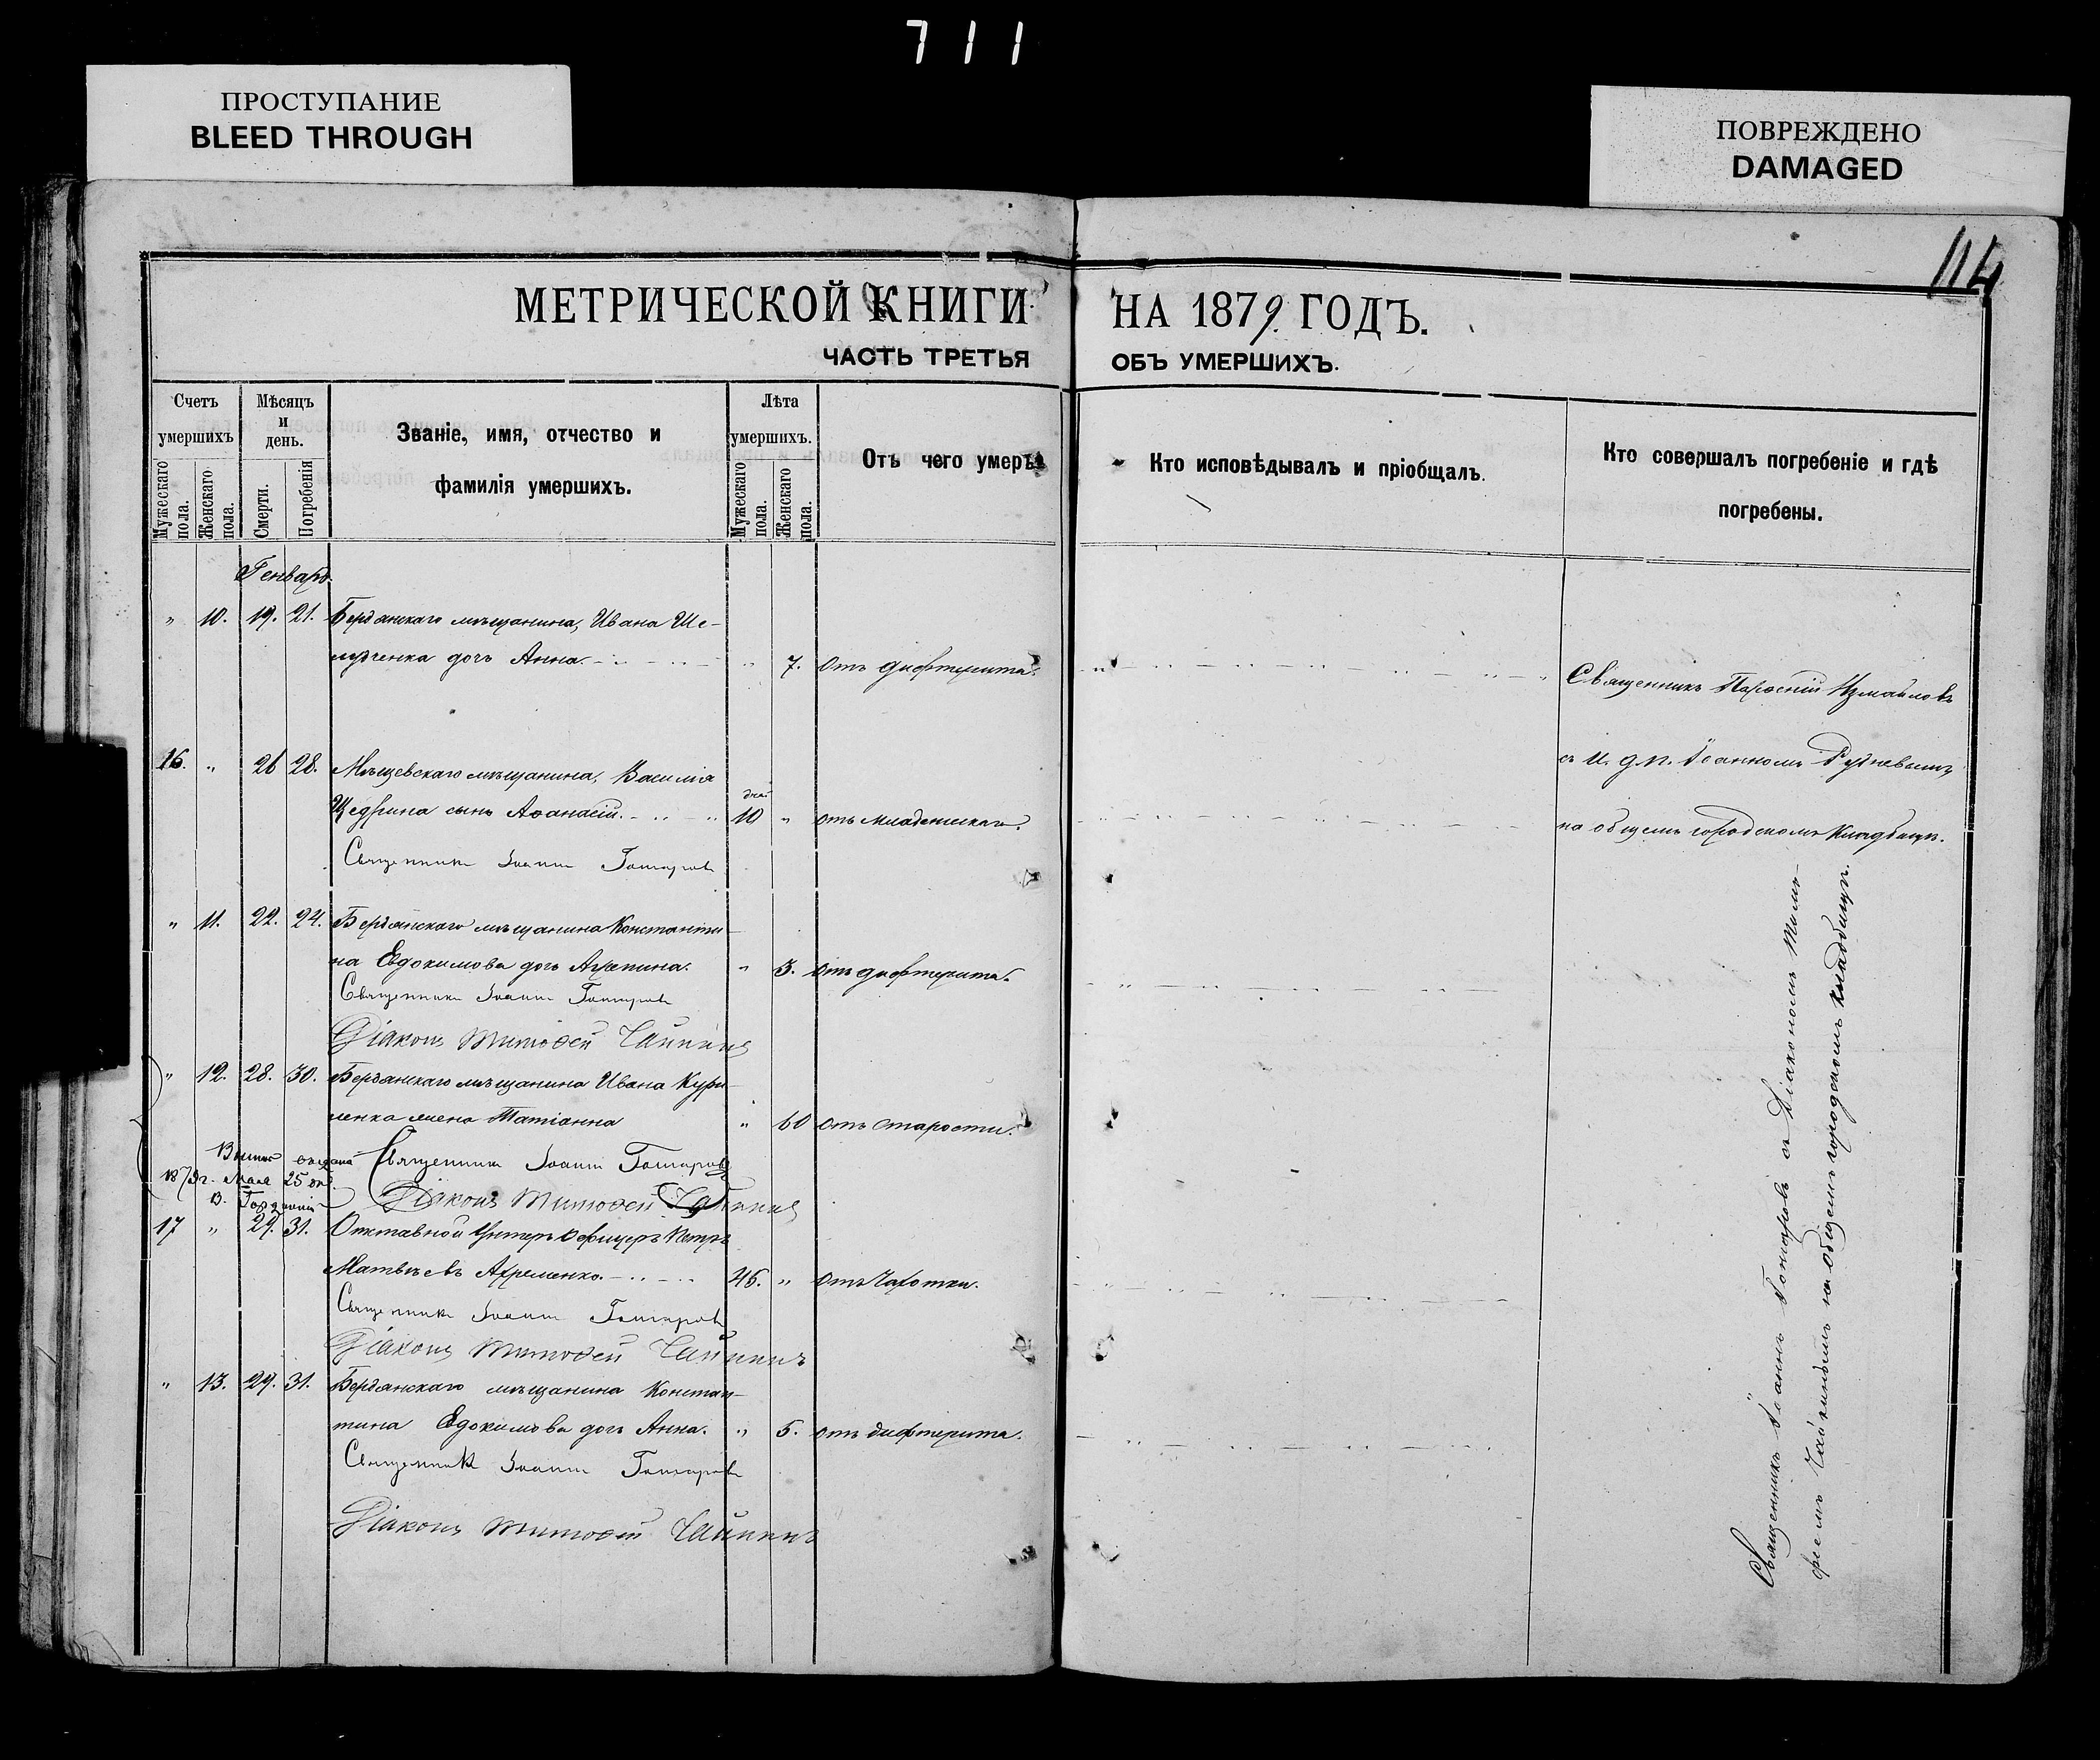 711
ПРОСТУПАНИЕ
BLEED THROUGH
ПОВРЕЖДЕНО
DAMAGED
114
МЕТРИЧЕСКОЙ КНИГИ НА 1879 ГОДЪ.
ЧАСТЬ ТРЕТЬЯ ОБЪ УМЕРШИХЪ.
Счетъ умершихъ
Мужескаго пола.
Женскаго пола.
Мѣсяцъ и день.
Смерти.
Погребенія
Званіе, имя, отчество и
фамилія умершихъ.
Лѣта умершихъ.
Мужескаго пола.
Женскаго пола.
Отъ чего умеръ
Кто исповѣдывалъ и пріобщалъ.
Кто совершалъ погребеніе и гдѣ
погребены.
Генварь
" 10. 19. 21. Бердянскаго мѣщанина, Ивана Ше-
дочь Анна. " 7. Отъ дифтерита.
Священникъ Измаиловъ
16. " 26 28. мѣщанина, Василія
съ И. д. п. Іоанномъ
дней
Щедрина сынъ Аѳанасій. 10 " отъ младенческаго.
на общемъ городскомъ кладбищѣ.
Священникъ Іоаннъ Гончаровъ
" 11. 22. 24. Бердянскаго мѣщанина Константи
на Евдокимова дочь Агрепина. " 3. Отъ дифтерита.
Священникъ Іоаннъ Гончаровъ
Діаконъ Тимоѳей Чайкинъ
" 12. 28. 30. Бердянскаго мѣщанина Ивана Кури
ленка жена Татіанна " 60 Отъ старости.
Священникъ Іоаннъ Гончаровъ
1879 г. Мая 25 дн.
Діаконъ Тимоѳей Чайкинъ
17 " 29. 31. Отставной Унтеръ Офицеръ Петръ
Матвѣевъ Ахременко. 46. " Отъ чахотки.
Священникъ Іоаннъ Гончаровъ
Діаконъ Тимоѳей Чайкинъ
" 13. 29. 31. Бердянскаго мѣщанина Констан-
тина Евдокимова дочь Анна. " 5. отъ дифтерита.
Священникъ Іоаннъ Гончаровъ
Діаконъ Тимоѳей Чайкинъ
Священникъ Іоаннъ Гончаровъ съ Діакономъ Тимо-
феемъ Чайкинымъ на общемъ городскомъ кладбищѣ.